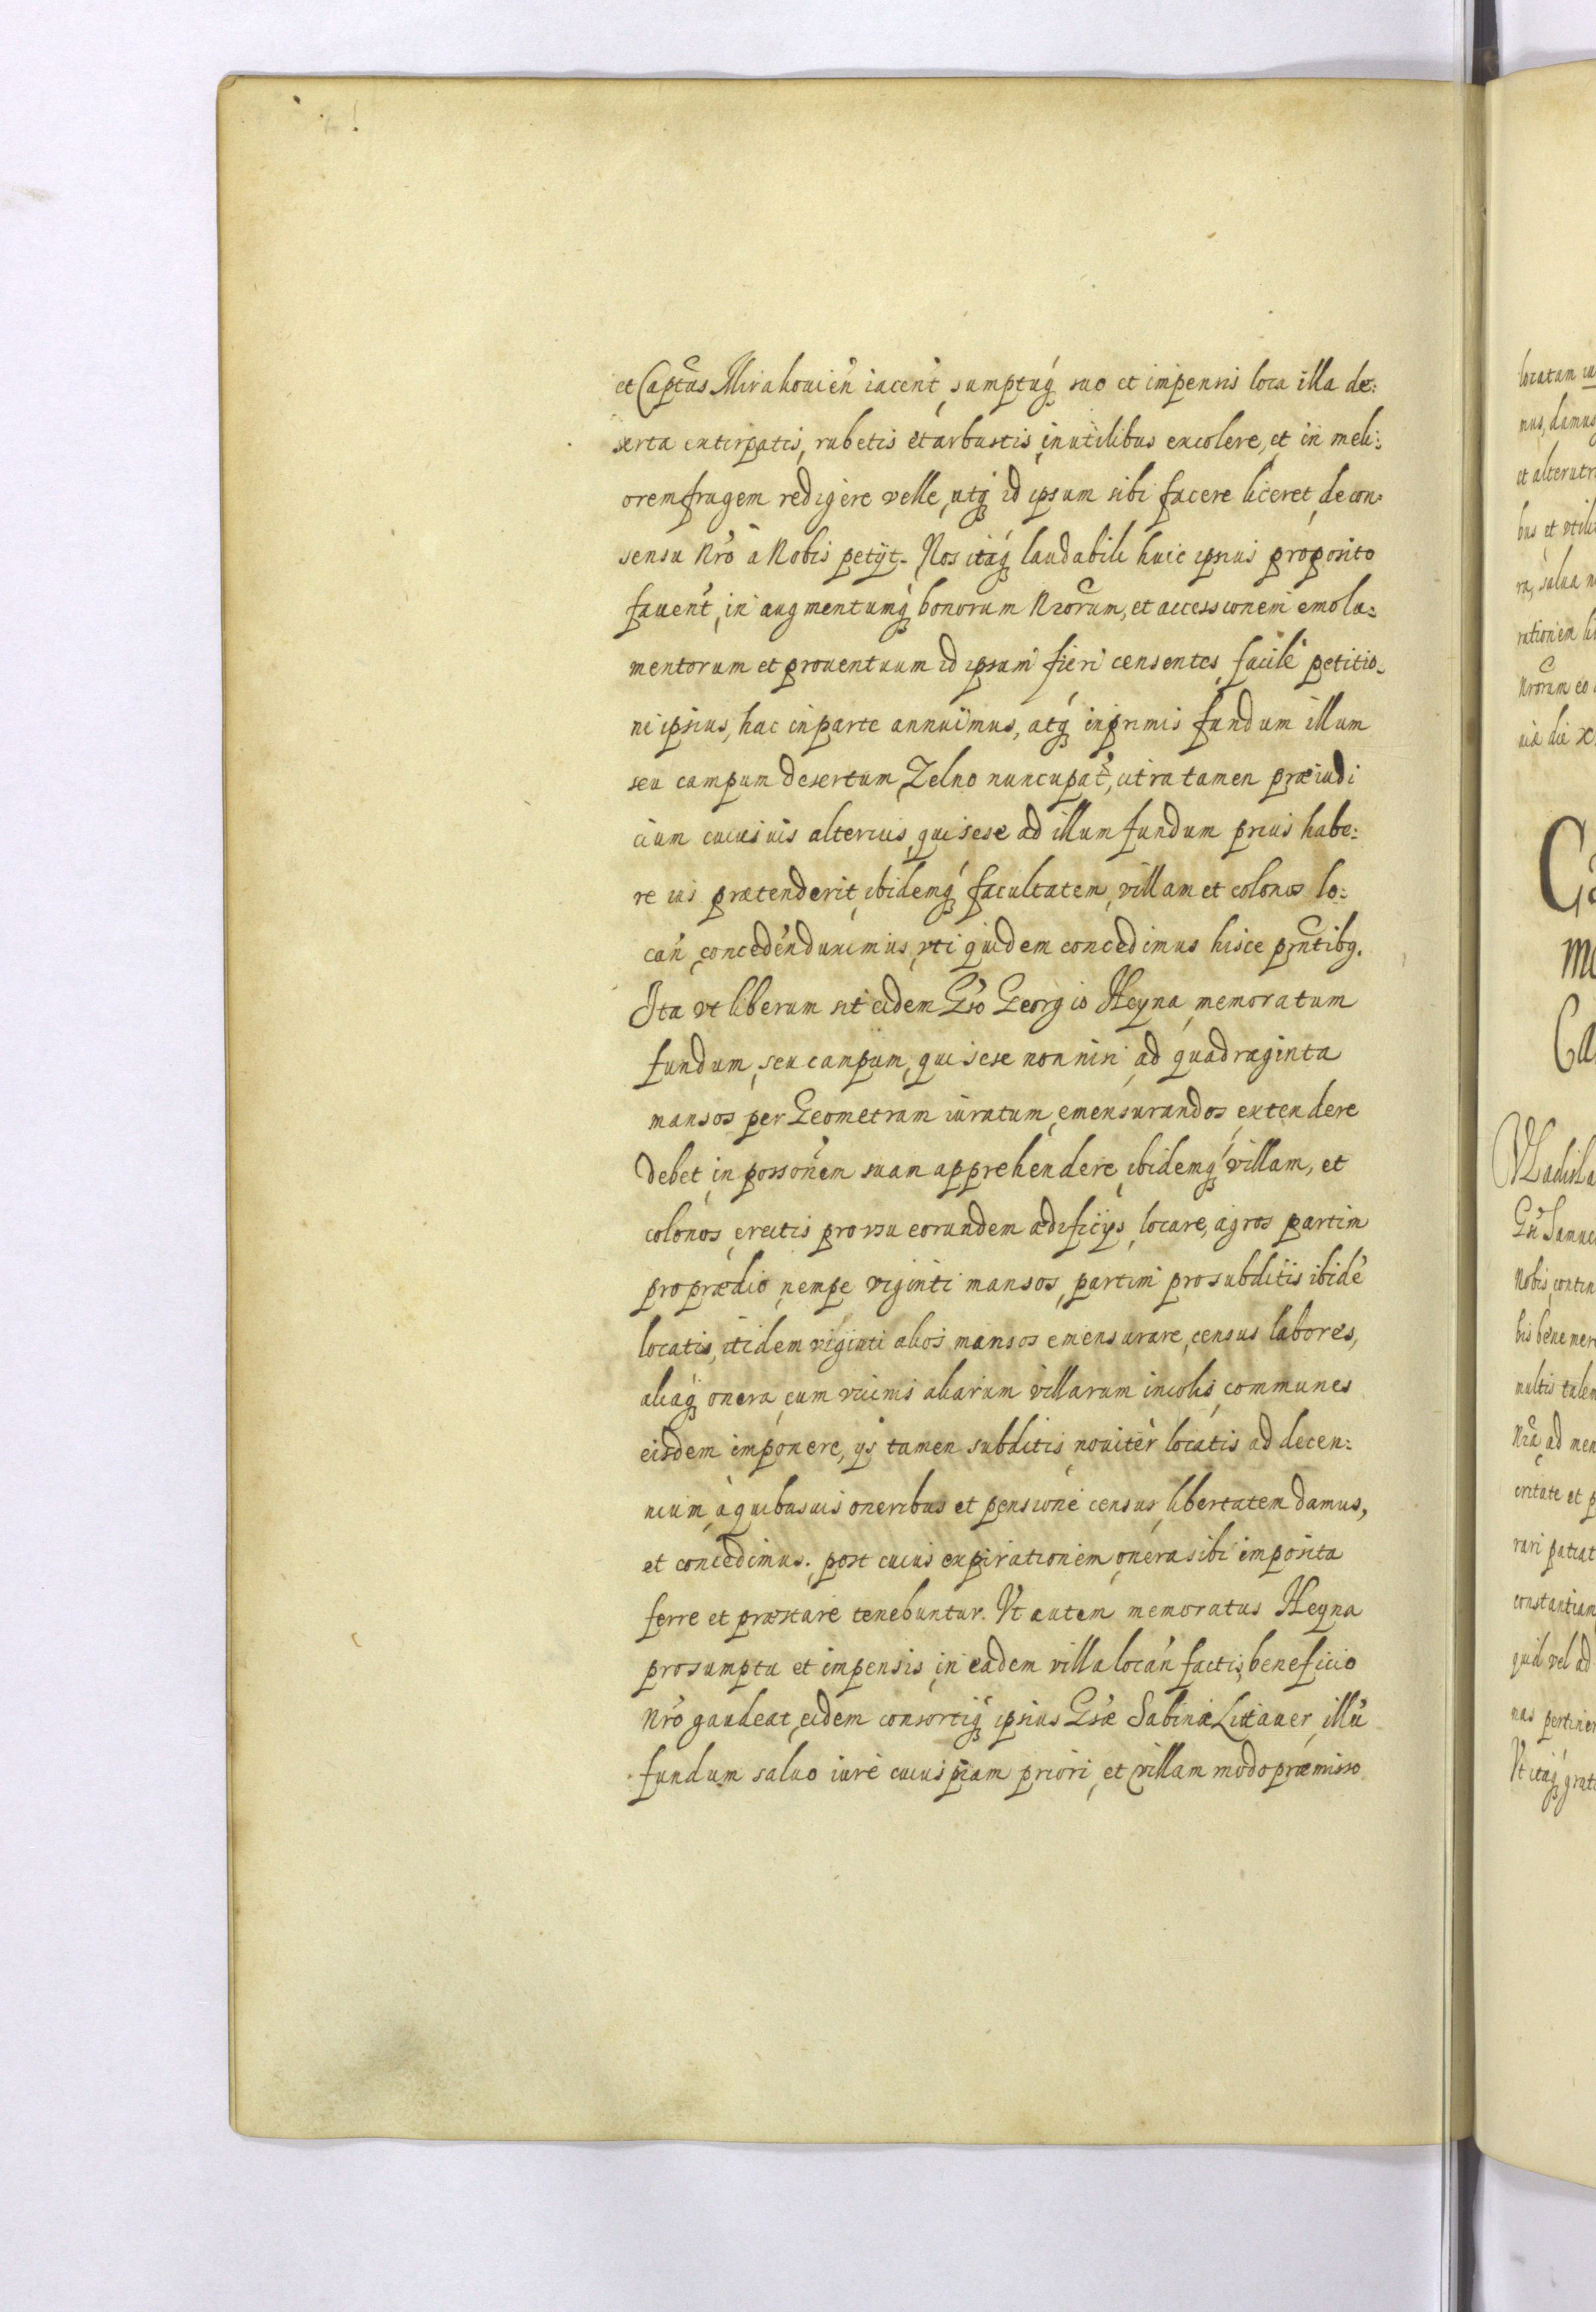 et Captus Mirahouień iaceńt, sumptuq́ suo et impensis loca illa de:
serta extirpatis, rubetis et arbustis, inutilibus excolere, et in meli:
orem frugem redigere velle, utq́ id ipsum sibi facere liceret, de con:
sensu Nro a Nobis petijt. Nos itaq́ laudabili huic ipsius proposito
faueńt, in augmentumq́ bonorum Nrorum, et accessionem emolu:
mentorum et prouentuum id ipsum fieri censentes, facile petitio-
ni ipsius, hac in parte annuimus, atq́ inprimis fundum illum
seu campum desertum Zelno nuncupat, citra tamen præiudi
cium cuiusuis alterius, qui sese ad illum fundum prius habe:
re ius prætenderit, ibidemq́ facultatem, villam et colonos lo:
cań, concedeńd duximus, vti quidem concedimus hisce prntibq.
Ita vt liberum sit eidem Gso Georgio Heyna, memoratum
fundum, seu campum, qui sese non nisi ad quadraginta
mansos per Geometram iuratum, emensurandos, extendere
debet, in possonem suam apprehendere, ibidemq́ villam, et
colonos, erectis pro vsu eorundem ædificijs, locare, agros partim
pro prædio, nempe viginti mansos, partim pro subditis ibidē
locatis, itidem viginti alios mansos emensurare, census labores,
aliaq́ onera, cum vicinis aliarum villarum incolis, communes
eisdem imponere, ijs tamen subditis, nouiter locatis ad decen:
nium, à quibusuis oneribus et pensione census, libertatem damus,
et concedimus. post cuius expirationem, onera sibi imposita
ferre et præstare tenebuntur. Vt autem memoratus Heyna
pro sumptu et impensis, in eadem villa locań factis, beneficio
Nro gaudeat, eidem consortiq́ ipsius Gsæ Sabinæ Littauer, illū
fundum saluo iure cuiuspiam priori, et villam modo præmisso
locatam
mus, damus
et alterutr
bus et vtili
ra, salua
rationem
Nrorum eo
die X
Ca
Vladisla
Samue
Nobis, contin
bis bene mer
multis talem
Nra, ad
eritate et p
rari patiat
constantiam
quid vel ad
nas pertinen
Vt itaq́ grat